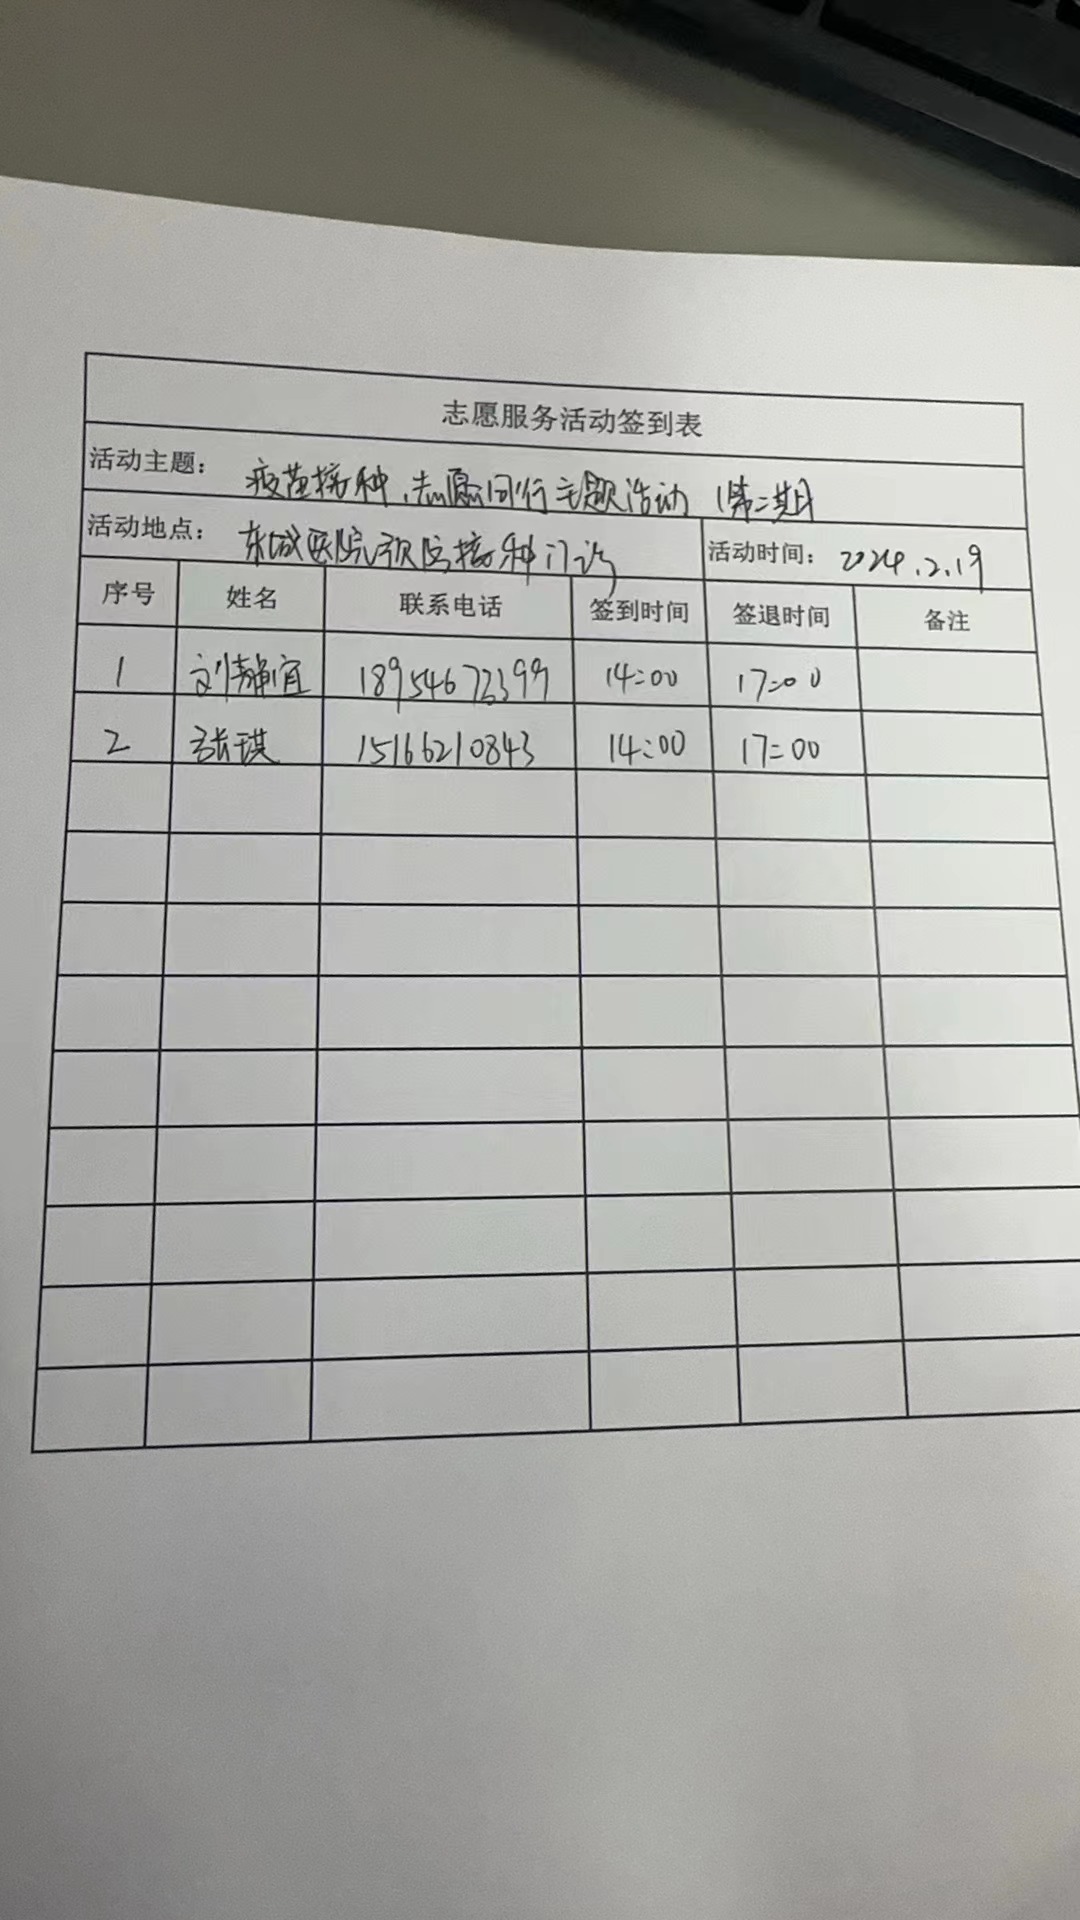 志愿服务活动签到表
活动主题： 疫苗接种，志愿同行主题活动（第二期）
活动地点： 东城医院预防接种门诊 活动时间： 2024.2.19
序号 姓名 联系电话 签到时间 签退时间 备注
1 刘静宜 18954672399 14:00 17:00
2 张琪 15166210843 14:00 17:00